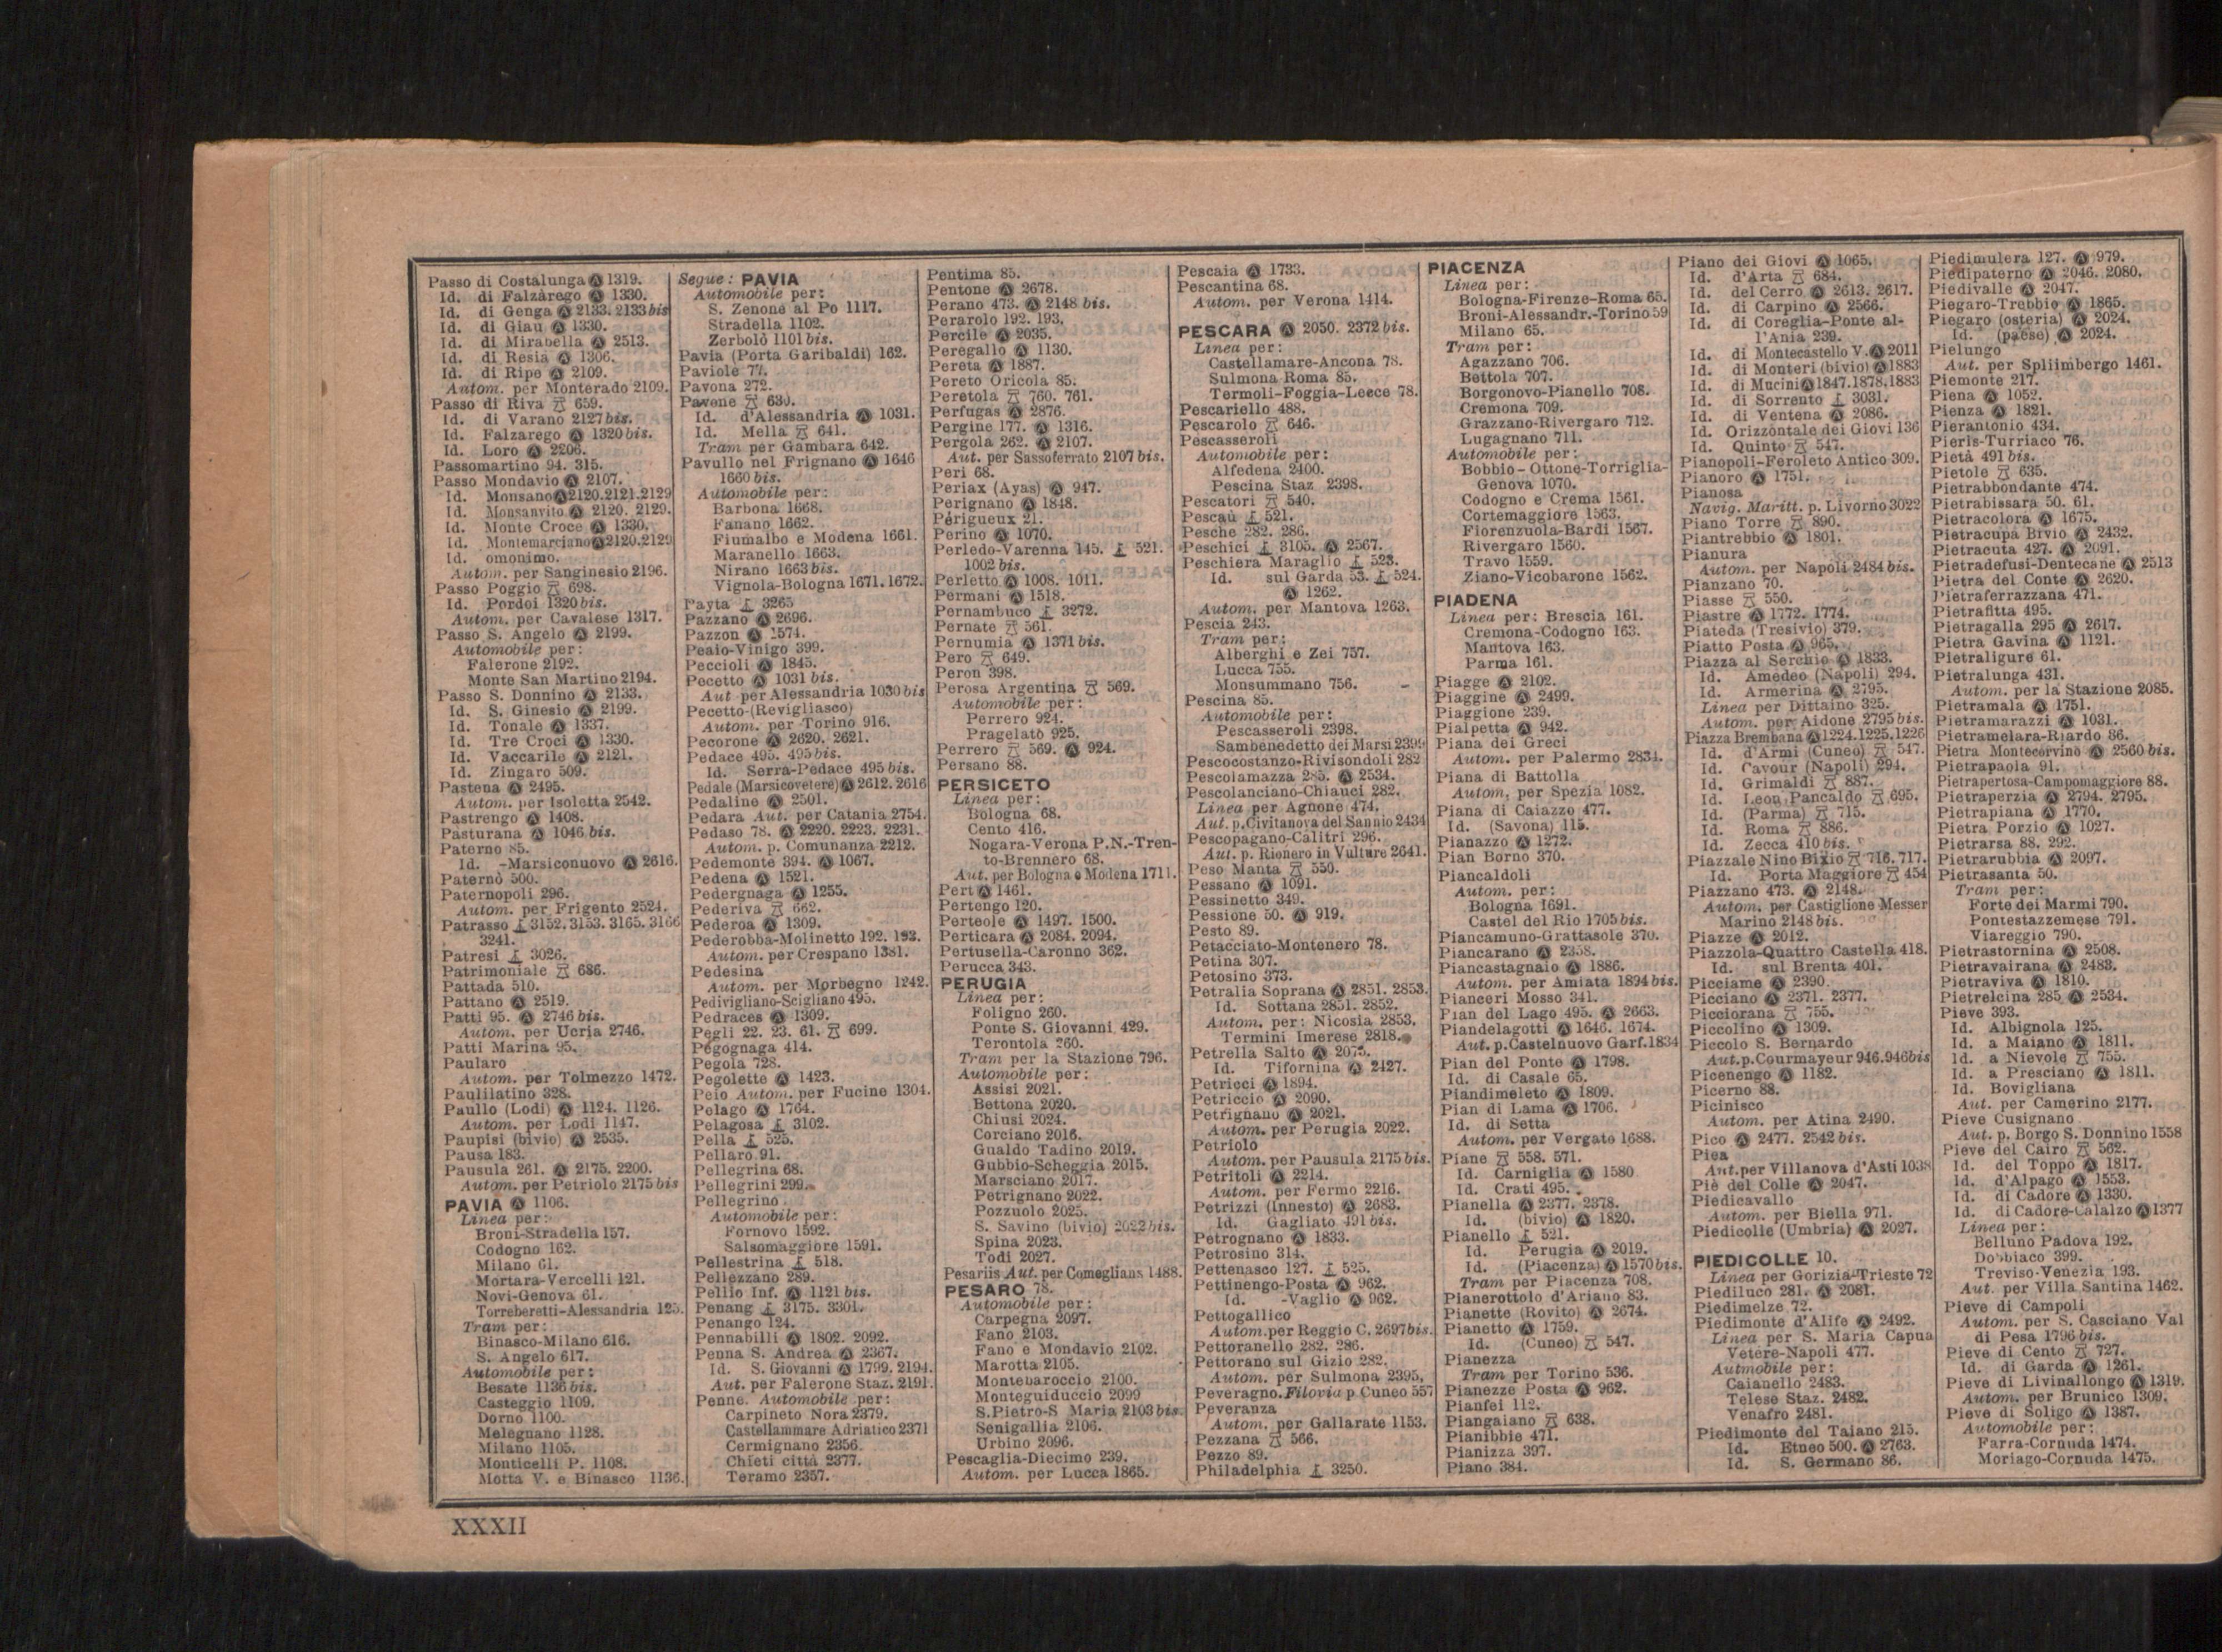 Passo di Costalunga Ⓐ 1319.
Id. di Falzárego Ⓐ 1330.
Id. di Genga Ⓐ 2133. 2133 bis
Id. di Giau Ⓐ 1330.
Id. di Mirabella Ⓐ 2513.
Id. di Resia Ⓐ 1306.
Id. di Ripe Ⓐ 2109.
Autom. per Monterado 2109.
Passo di Riva 659.
Id. di Varano 2127 bis.
Id. Falzarego Ⓐ 1320 bis.
Id. Loro Ⓐ 2206.
Passomartino 94. 315.
Passo Mondavio Ⓐ 2107.
Id. Monsano Ⓐ 2120. 2121. 2129
Id. Monsanvito Ⓐ 2120. 2129.
Id. Monte Croce Ⓐ 1330.
Id. Montemarciano Ⓐ 2120. 2129
Id. omonimo.
Autom. per Sanginesio 2196.
Passo Poggio 698.
Id. Pordoi 1320 bis.
Autom. per Cavalese 1317.
Passo S. Angelo Ⓐ 2199.
Automobile per:
Falerone 2192.
Monte San Martino 2194.
Passo S. Donnino Ⓐ 2133.
Id. S. Ginesio Ⓐ 2199.
Id. Tonale Ⓐ 1337.
Id. Tre Croci Ⓐ 1330.
Id. Vaccarile Ⓐ 2121.
Id. Zingaro 509.
Pastena Ⓐ 2495.
Autom. per Isoletta 2542.
Pastrengo Ⓐ 1408.
Pasturana Ⓐ 1046 bis.
Paterno 85.
Id. -Marsiconuovo Ⓐ 2616.
Paternò 500.
Paternopoli 296.
Autom. per Frigento 2524.
Patrasso 3152. 3153. 3165. 3166
3241.
Patresi 3026.
Patrimoniale 686.
Pattada 510.
Pattano Ⓐ 2519.
Patti 95. Ⓐ 2746 bis.
Autom. per Ucria 2746.
Patti Marina 95.
Paularo
Autom. per Tolmezzo 1472.
Paulilatino 328.
Paullo (Lodi) Ⓐ 1124. 1126.
Autom. per Lodi 1147.
Paupisi (bivio) Ⓐ 2535.
Pausa 183.
Pausula 261. Ⓐ 2175. 2200.
Autom. per Petriolo 2175 bis
PAVIA Ⓐ 1106.
Linea per:
Broni-Stradella 157.
Codogno 162.
Milano 61.
Mortara-Vercelli 121.
Novi-Genova 61.
Torreberetti-Alessandria 125.
Tram per:
Binasco-Milano 616.
S. Angelo 617.
Automobile per:
Besate 1136 bis.
Casteggio 1109.
Dorno 1100.
Melegnano 1128.
Milano 1105.
Monticelli P. 1108.
Motta V. e Binasco 1136.
Segue: PAVIA
Automobile per:
S. Zenone al Po 1117.
Stradella 1102.
Zerbolò 1101 bis.
Pavia (Porta Garibaldi) 162.
Paviole 77.
Pavona 272.
Pavone 630.
Id. d'Alessandria Ⓐ 1031.
Id. Mella 641.
Tram per Gambara 642.
Pavullo nel Frignano Ⓐ 1646
1660 bis.
Automobile per:
Barbona 1668.
Fanano 1662.
Fiumalbo e Modena 1661.
Maranello 1663.
Nirano 1663 bis.
Vignola-Bologna 1671. 1672.
Payta 3265
Pazzano Ⓐ 2696.
Pazzon Ⓐ 1574.
Peaio-Vinigo 399.
Peccioli Ⓐ 1845.
Pecetto Ⓐ 1031 bis.
Aut per Alessandria 1030 bis
Pecetto (Revigliasco)
Autom. per Torino 916.
Pecorone Ⓐ 2620. 2621.
Pedace 495. 495 bis.
Id. Serra-Pedace 495 bis.
Pedale (Marsicovetere) Ⓐ 2612. 2616
Pedaline Ⓐ 2501.
Pedara Aut. per Catania 2754.
Pedaso 78. Ⓐ 2220. 2223. 2231.
Autom. p. Comunanza 2212.
Pedemonte 394. Ⓐ 1067.
Pedena Ⓐ 1521.
Pedergnaga Ⓐ 1255.
Pederiva 662.
Pederoa Ⓐ 1309.
Pederobba-Molinetto 192. 193.
Autom. per Crespano 1381.
Pedesina
Autom. per Morbegno 1242.
Pedivigliano-Scigliano 495.
Pedraces Ⓐ 1309.
Pegli 22. 23. 61. 699.
Pegognaga 414.
Pegola 728.
Pegolette Ⓐ 1423.
Peio Autom. per Fucine 1304.
Pelago Ⓐ 1764.
Pelagosa 3102.
Pella 525.
Pellaro 91.
Pellegrina 68.
Pellegrini 299.
Pellegrino
Automobile per:
Fornovo 1592.
Salsomaggiore 1591.
Pellestrina 518.
Pellezzano 289.
Pellio Inf. Ⓐ 1121 bis.
Penang 3175. 3301.
Penango 124.
Pennabilli Ⓐ 1802. 2092.
Penna S. Andrea Ⓐ 2367.
Id. S. Giovanni Ⓐ 1799. 2194.
Aut. per Falerone Staz. 2191.
Penne. Automobile per:
Carpineto Nora 2379.
Castellammare Adriatico 2371
Cermignano 2356.
Chieti città 2377.
Teramo 2357.
Pentima 85.
Pentone Ⓐ 2678.
Perano 473. Ⓐ 2148 bis.
Perarolo 192. 193.
Percile Ⓐ 2035.
Peregallo Ⓐ 1130.
Pereta Ⓐ 1887.
Pereto Oricola 85.
Peretola 760. 761.
Perfugas Ⓐ 2876.
Pergine 177. Ⓐ 1316.
Pergola 262. Ⓐ 2107.
Aut. per Sassoferrato 2107 bis.
Peri 68.
Periax (Ayas) Ⓐ 947.
Perignano Ⓐ 1848.
Périgueux 21.
Perino Ⓐ 1070.
Perledo-Varenna 145. 521.
1002 bis.
Perletto Ⓐ 1008. 1011.
Permani Ⓐ 1518.
Pernambuco 3272.
Pernate 561.
Pernumia Ⓐ 1371 bis.
Pero 649.
Peron 398.
Perosa Argentina 569.
Automobile per:
Perrero 924.
Pragelato 925.
Perrero 569. Ⓐ 924.
Persano 88.
PERSICETO
Linea per:
Bologna 68.
Cento 416.
Nogara-Verona P.N.-Tren-
to-Brennero 68.
Aut. per Bologna e Modena 1711.
Pert Ⓐ 1461.
Pertengo 120.
Perteole Ⓐ 1497. 1500.
Perticara Ⓐ 2084. 2094.
Pertusella-Caronno 362.
Perucca 343.
PERUGIA
Linea per:
Foligno 260.
Ponte S. Giovanni 429.
Terontola 260.
Tram per la Stazione 796.
Automobile per:
Assisi 2021.
Bettona 2020.
Chiusi 2024.
Corciano 2016.
Gualdo Tadino 2019.
Gubbio-Scheggia 2015.
Marsciano 2017.
Petrignano 2022.
Pozzuolo 2025.
S. Savino (bivio) 2022 bis.
Spina 2023.
Todi 2027.
Pesariis Aut. per Comeglians 1488.
PESARO 78.
Automobile per:
Carpegna 2097.
Fano 2103.
Fano e Mondavio 2102.
Marotta 2105.
Montebaroccio 2100.
Monteguiduccio 2099
S. Pietro-S Maria 2103 bis.
Senigallia 2106.
Urbino 2096.
Pescaglia-Diecimo 239.
Autom. per Lucca 1865.
Pescaia Ⓐ 1733.
Pescantina 68.
Autom. per Verona 1414.
PESCARA Ⓐ 2050. 2372 bis.
Linea per:
Castellamare-Ancona 78.
Sulmona Roma 85.
Termoli-Foggia-Lecce 78.
Pescariello 488.
Pescarolo 646.
Pescasseroli
Automobile per:
Alfedena 2400.
Pescina Staz. 2398.
Pescatori 540.
Pescaù 521.
Pesche 282. 286.
Peschici 3105. Ⓐ 2567.
Peschiera Maraglio 523.
Id. sul Garda 53. 524.
Ⓐ 1262.
Autom. per Mantova 1263.
Pescia 243.
Tram per:
Alberghi e Zei 757.
Lucca 755.
Monsummano 756.
Pescina 85.
Automobile per:
Pescasseroli 2398.
Sambenedetto dei Marsi 2399
Pescocostanzo-Rivisondoli 282
Pescolamazza 285. Ⓐ 2534.
Pescolanciano-Chiauci 282.
Linea per Agnone 474.
Aut. p. Civitanova del Sannio 2434
Pescopagano-Calitri 296.
Aut. p. Rionero in Vulture 2641.
Peso Manta 550.
Pessano Ⓐ 1091.
Pessinetto 349.
Pessione 50. Ⓐ 919.
Pesto 89.
Petacciato-Montenero 78.
Petina 307.
Petosino 373.
Petralia Soprana Ⓐ 2851. 2853.
Id. Sottana 2851. 2852.
Autom. per: Nicosia 2853.
Termini Imerese 2818.
Petrella Salto Ⓐ 2075.
Id. Tifornina Ⓐ 2427.
Petricci Ⓐ 1894.
Petriccio Ⓐ 2090.
Petrignano Ⓐ 2021.
Autom. per Perugia 2022.
Petriolo
Autom. per Pausula 2175 bis.
Petritoli Ⓐ 2214.
Autom. per Fermo 2216.
Petrizzi (Innesto) Ⓐ 2683.
Id. Gagliato 491 bis.
Petrognano Ⓐ 1833.
Petrosino 314.
Pettenasco 127. 525.
Pettinengo-Posta Ⓐ 962.
Id. -Vaglio Ⓐ 962.
Pettogallico
Autom. per Reggio C. 2697 bis.
Pettoranello 282. 286.
Pettorano sul Gizio 282.
Autom. per Sulmona 2395.
Peveragno. Filovia p. Cuneo 557
Peveranza
Autom. per Gallarate 1153.
Pezzana 566.
Pezzo 89.
Philadelphia 3250.
PIACENZA
Linea per:
Bologna-Firenze-Roma 65.
Broni-Alessandr.-Torino 59
Milano 65.
Tram per:
Agazzano 706.
Bettola 707.
Borgonovo-Pianello 708.
Cremona 709.
Grazzano-Rivergaro 712.
Lugagnano 711.
Automobile per:
Bobbio-Ottone-Torriglia-
Genova 1070.
Codogno e Crema 1561.
Cortemaggiore 1563.
Fiorenzuola-Bardi 1567.
Rivergaro 1560.
Travo 1559.
Ziano-Vicobarone 1562.
PIADENA
Linea per: Brescia 161.
Cremona-Codogno 163.
Mantova 163.
Parma 161.
Piagge Ⓐ 2102.
Piaggine Ⓐ 2499.
Piaggione 239.
Pialpetta Ⓐ 942.
Piana dei Greci
Autom. per Palermo 2834.
Piana di Battolla
Autom. per Spezia 1082.
Piana di Caiazzo 477.
Id. (Savona) 115.
Pianazzo Ⓐ 1272.
Pian Borno 370.
Piancaldoli
Autom. per:
Bologna 1691.
Castel del Rio 1705 bis.
Piancamuno-Grattasole 370.
Piancarano Ⓐ 2358.
Piancastagnaio Ⓐ 1886.
Autom. per Amiata 1894 bis.
Pianceri Mosso 341.
Pian del Lago 495. Ⓐ 2663.
Piandelagotti Ⓐ 1646. 1674.
Aut. p. Castelnuovo Garf. 1834
Pian del Ponte Ⓐ 1798.
Id. di Casale 65.
Piandimeleto Ⓐ 1809.
Pian di Lama Ⓐ 1706.
Id. di Setta
Autom. per Vergato 1688.
Piane 558. 571.
Id. Carniglia Ⓐ 1580
Id. Crati 495.
Pianella Ⓐ 2377. 2378.
Id. (bivio) Ⓐ 1820.
Pianello 521.
Id. Perugia Ⓐ 2019.
Id. (Piacenza) Ⓐ 1570 bis.
Tram per Piacenza 708.
Pianerottolo d'Ariano 83.
Pianette (Rovito) Ⓐ 2674.
Pianetto Ⓐ 1759.
Id. (Cuneo) 547.
Pianezza
Tram per Torino 536.
Pianezze Posta Ⓐ 962.
Pianfei 112.
Piangaiano 638.
Pianibbie 471.
Pianizza 397.
Piano 384.
Piano dei Giovi Ⓐ 1065.
Id. d'Arta 684.
Id. del Cerro Ⓐ 2613. 2617.
Id. di Carpino Ⓐ 2566.
Id. di Coreglia-Ponte al-
l'Ania 239.
Id. di Montecastello V. Ⓐ 2011
Id. di Monteri (bivio) Ⓐ 1883
Id. di Mucini Ⓐ 1847. 1878. 1883
Id. di Sorrento 3031.
Id. di Ventena Ⓐ 2086.
Id. Orizzontale dei Giovi 136
Id. Quinto 547.
Pianopoli-Feroleto Antico 309.
Pianoro Ⓐ 1751.
Pianosa
Navig. Maritt. p. Livorno 3022
Piano Torre 890.
Piantrebbio Ⓐ 1801.
Pianura
Autom. per Napoli 2484 bis.
Pianzano 70.
Piasse 550.
Piastre Ⓐ 1772. 1774.
Piateda (Tresivio) 379.
Piatto Posta Ⓐ 965.
Piazza al Serchio Ⓐ 1833.
Id. Amedeo (Napoli) 294.
Id. Armerina Ⓐ 2795.
Linea per Dittaino 325.
Autom. per Aidone 2795 bis.
Piazza Brembana Ⓐ 1224. 1225. 1226
Id. d'Armi (Cuneo) 547.
Id. Cavour (Napoli) 294.
Id. Grimaldi 887.
Id. Leon Pancaldo 695.
Id. (Parma) 715.
Id. Roma 886.
Id. Zecca 410 bis.
Piazzale Nino Bixio 716. 717.
Id. Porta Maggiore 454
Piazzano 473. Ⓐ 2148.
Autom. per Castiglione Messer
Marino 2148 bis.
Piazze Ⓐ 2012.
Piazzola-Quattro Castella 418.
Id. sul Brenta 401.
Picciame Ⓐ 2390
Picciano Ⓐ 2371. 2377.
Picciorana 755.
Piccolino Ⓐ 1309.
Piccolo S. Bernardo
Aut. p. Courmayeur 946. 946 bis
Picenengo Ⓐ 1182.
Picerno 88.
Picinisco
Autom. per Atina 2490.
Pico Ⓐ 2477. 2542 bis.
Piea
Aut. per Villanova d'Asti 1038
Piè del Colle Ⓐ 2047.
Piedicavallo
Autom. per Biella 971.
Piedicolle (Umbria) Ⓐ 2027.
PIEDICOLLE 10.
Linea per Gorizia-Trieste 72
Piediluco 281. Ⓐ 2081.
Piedimelze 72.
Piedimonte d'Alife Ⓐ 2492.
Linea per S. Maria Capua
Vetere-Napoli 477.
Autmobile per:
Caianello 2483.
Telese Staz. 2482.
Venafro 2481.
Piedimonte del Taiano 215.
Id. Etneo 500. Ⓐ 2763.
Id. S. Germano 86.
Piedimulera 127. Ⓐ 979.
Piedipaterno Ⓐ 2046. 2080.
Piedivalle Ⓐ 2047.
Piegaro-Trebbio Ⓐ 1865.
Piegaro (osteria) Ⓐ 2024.
Id. (paese) Ⓐ 2024.
Pielungo
Aut. per Spliimbergo 1461.
Piemonte 217.
Piena Ⓐ 1052.
Pienza Ⓐ 1821.
Pierantonio 434.
Pieris-Turriaco 76.
Pietà 491 bis.
Pietole 635.
Pietrabbondante 474.
Pietrabissara 50. 61.
Pietracolora Ⓐ 1675.
Pietracupa Bivio Ⓐ 2432.
Pietracuta 427. Ⓐ 2091.
Pietradefusi-Dentecane Ⓐ 2513
Pietra del Conte Ⓐ 2620.
Pietraferrazzana 471.
Pietrafitta 495.
Pietragalla 295 Ⓐ 2617.
Pietra Gavina Ⓐ 1121.
Pietraligure 61.
Pietralunga 431.
Autom. per la Stazione 2085.
Pietramala Ⓐ 1751.
Pietramarazzi Ⓐ 1031.
Pietramelara-Riardo 86.
Pietra Montecorvino Ⓐ 2560 bis.
Pietrapaola 91.
Pietrapertosa-Campomaggiore 88.
Pietraperzia Ⓐ 2794. 2795.
Pietrapiana Ⓐ 1770.
Pietra Porzio Ⓐ 1027.
Pietrarsa 88. 292.
Pietrarubbia Ⓐ 2097.
Pietrasanta 50.
Tram per:
Forte dei Marmi 790.
Pontestazzemese 791.
Viareggio 790.
Pietrastornina Ⓐ 2508.
Pietravairana Ⓐ 2483.
Pietraviva Ⓐ 1810.
Pietrelcina 285 Ⓐ 2534.
Pieve 393.
Id. Albignola 125.
Id. a Maiano Ⓐ 1811.
Id. a Nievole 755.
Id. a Presciano Ⓐ 1811.
Id. Bovigliana
Aut. per Camerino 2177.
Pieve Cusignano
Aut. p. Borgo S. Donnino 1558
Pieve del Cairo 562.
Id. del Toppo Ⓐ 1817.
Id. d'Alpago Ⓐ 1553.
Id. di Cadore Ⓐ 1330.
Id. di Cadore-Calalzo Ⓐ 1377
Linea per:
Belluno Padova 192.
Dobbiaco 399.
Treviso-Venezia 193.
Aut. per Villa Santina 1462.
Pieve di Campoli
Autom. per S. Casciano Val
di Pesa 1796 bis.
Pieve di Cento 727.
Id. di Garda Ⓐ 1261.
Pieve di Livinallongo Ⓐ 1319.
Autom. per Brunico 1309.
Pieve di Soligo Ⓐ 1387.
Automobile per:
Farra-Cornuda 1474.
Moriago-Cornuda 1475.
XXXII